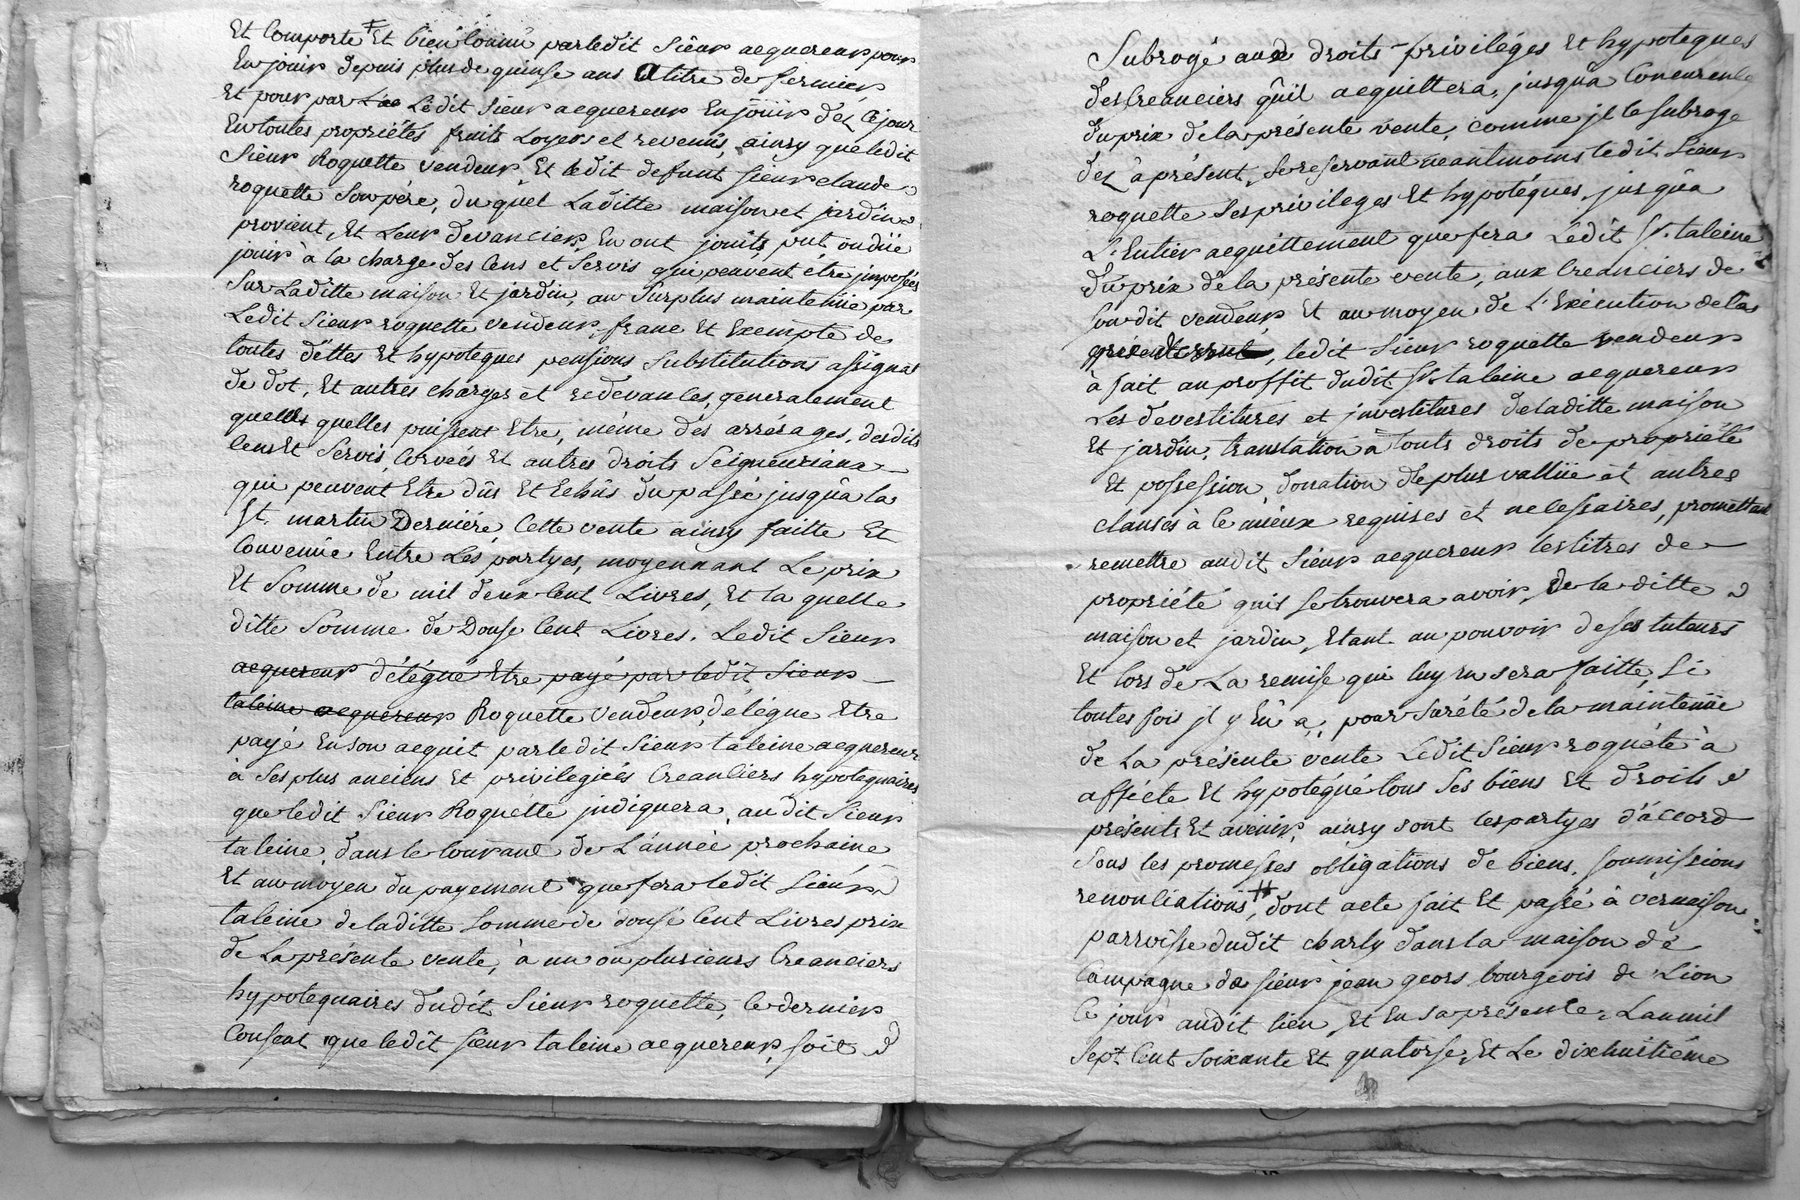 Et Comporte Et bien connu par ledit Sieur acquereur pour
En jouir depuis plus de quinse ans A titre de fermier
Et pour par Ledit Sieur acquereur En jouir dez Ce jour
En toutes propriétés fruits Loyers et revenus, ainsy que ledit
Sieur Roquette vendeur, Et ledit defunt Sieur claude
roquette Son pére, du quel Laditte maison et jardin
provient, Et Leur devanciers, En ont jouits, put ou düe
jouir à la charge des Cens et Servis qui peuvent être jmposées
Sur Laditte maison Et jardin, au Surplus maintenüe par
Ledit Sieur roquette vendeur, franc Et Exempte de
toutes déttes Et hypoteques pensions Substitutions assignat
de dot, Et autres charges et redevances, generalement
quelles quelles puissent Etre, même dés arrérages, desdits
Cens Et Servis, Corveés Et autres droits Seigneuriaux
qui peuvent Etre dûs Et Echûs du passé jusqu'a la
St. martin Derniére, Cette vente ainsy faitte Et
Convenüe Entre Les partyes, moyennant Le prix
Et Somme de mil deux Cent Livres, Et la quelle
ditte Somme de Douse Cent Livres. Ledit Sieur
acquereur délégue Etre payé par ledit Sieur
taleine acquereur Roquette vendeur, delégue Etre
payé En son acquit par ledit Sieur taleine acquereur
à Ses plus anciens Et privilegiés Creanciers hypotequaires
que ledit Sieur Roquette jndiquera, audit Sieur
taleine, dans le Courant de L'année prochaine
Et au moyen du payement que fera ledit Sieur
taleine de laditte Somme de douse Cent Livres prix
de La présente vente, à un ou plusieurs Creanciers
hypotequaires dudit Sieur roquette, Ce dernier
Consent que ledit Sieur taleine acquereur, soit
Subrogé aux droits privilèges Et hypoteques
des Creanciers qu'il acquittera, jusqu'a Concurence
du prix de la présente vente, comme jl le Subroge
déz à présent, Se reservant neantmoins ledit Sieur
roquette Ses privileges Et hypotéques, jusqu'a
L'Entier acquittement que fera Ledit Sr. taleine
du prix de la présente vente, aux Creanciers de
Sondit vendeur, Et au moyen de L'Exécution de la
ledit Sieur roquette vendeur
à fait au proffit dudit Sr. taleine acquereur
Les devestitures et jnvestitures de laditte maison
Et jardin, translation à touts droits de propriété
Et possession, donation de plus vallüe et autres
clauses à Ce mieux requises et necessaires, promettant
remettre audit Sieur acquereur les titres de
propriété quil Se trouvera avoir, De la ditte
maison et jardin, Etant au pouvoir de ses tuteurs
Et lors de La remise qui luy en sera faitte, Si
toutes fois jl y En a, pour Sûreté de la maintenüe
de La présente vente Ledit Sieur roquéte à
afféete Et hypotéqué tous Ses biens Et droits
présents Et avenir, ainsy sont les partyes d'accord
Sous les promesses obligations de biens, soumissions
renonciations, dont acte fait Et passé à vernaison
parroisse dudit charly dans la maison de
Campagne de Sieur jean geors bourgeois de Lion
Ce jour audit lieu, Et En sa présente, L'an mil
Sept Cent Soixante Et quatorse, Et Le dixhuitiéme